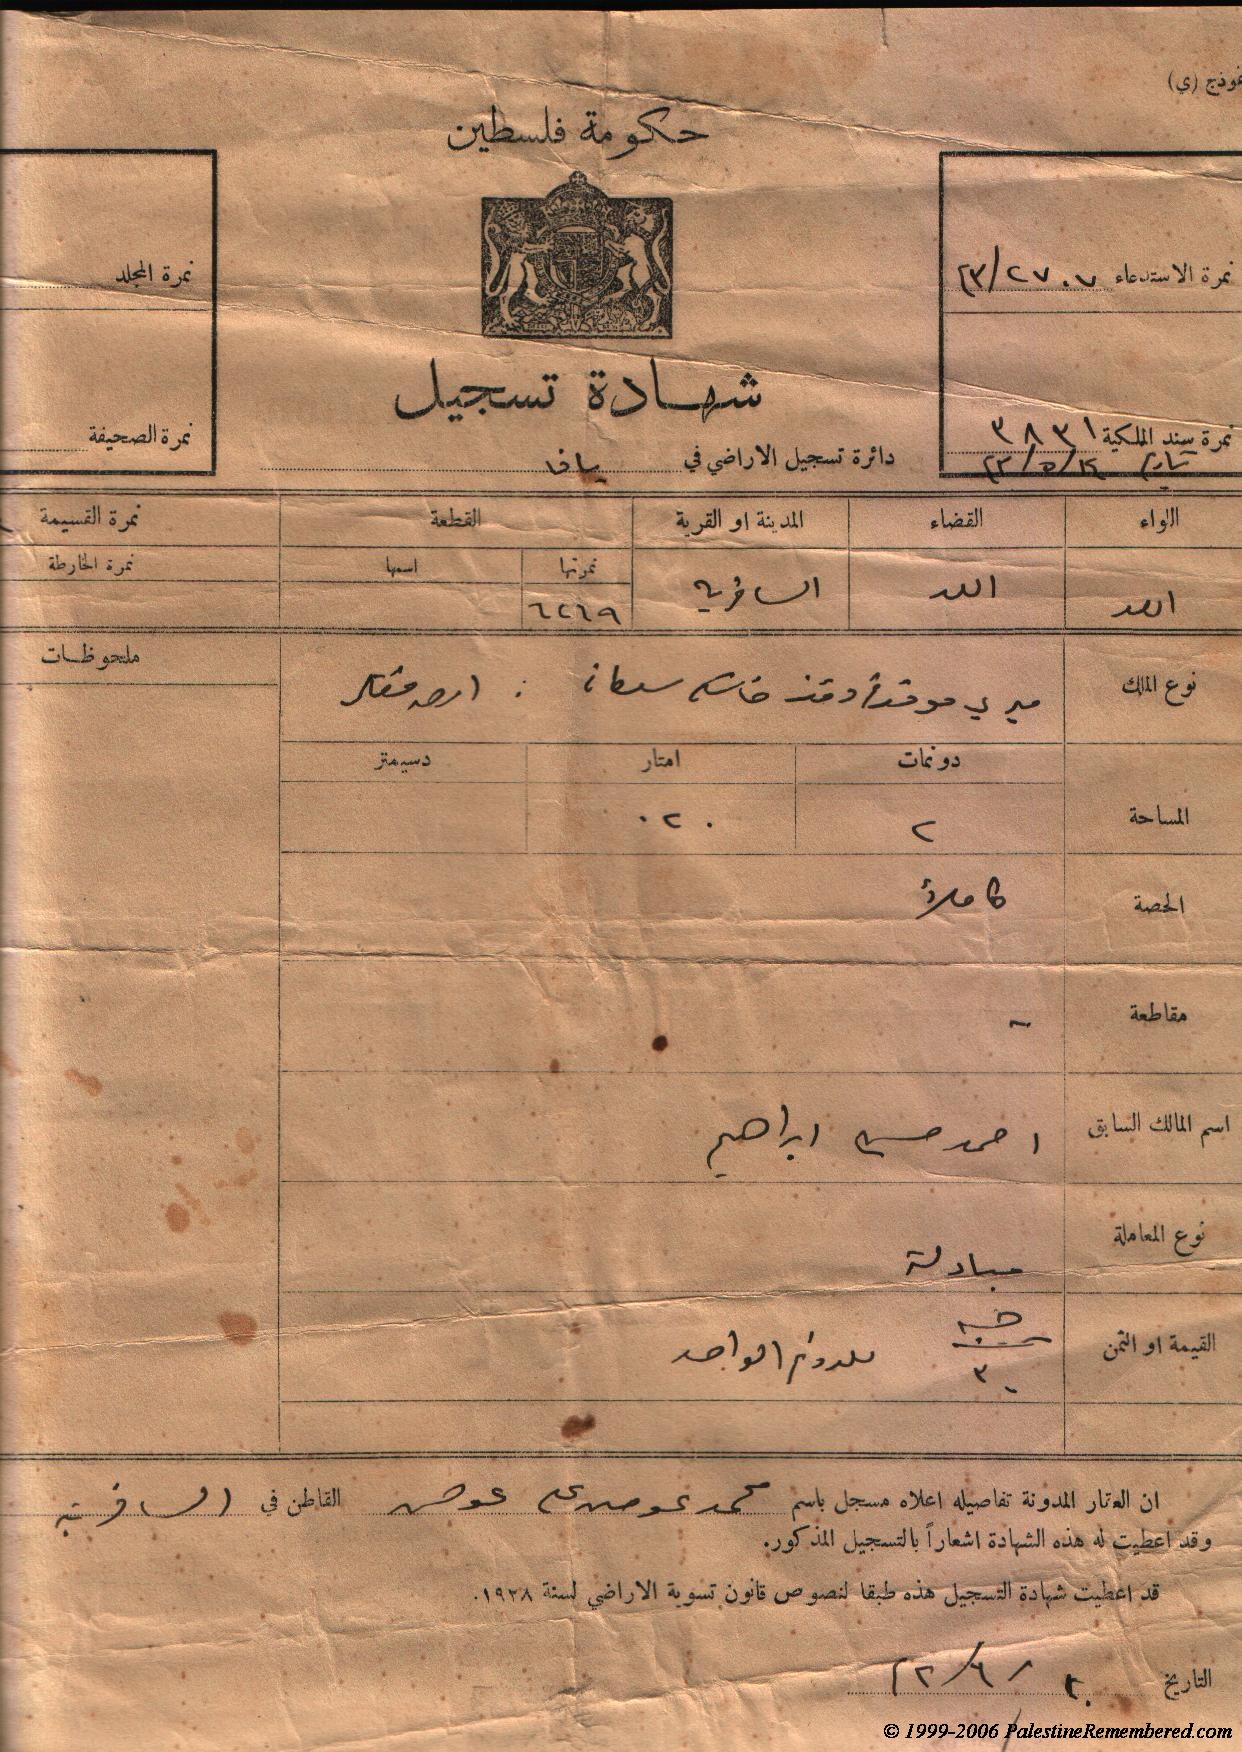 نموذج (ي)
حكومة فلسطين
نمرة الاستدعاء ٢٣/٢٧٠٧
نمرة المجلد
شهادة تسجيل
نمرة سند الملكية ٣٨٣١
نمرة الصحيفة
دائرة تسجيل الاراضي في يافا
تاريخ
اللواء القضاء المدينة او القرية القطعة نمرة القسيمة
نمرتها اسمها نمرة الخارطة
اللد اللد السافرية ٦٢٦٩
ملحوظات
نوع الملك ميري موقوفة
دونمات امتار دسيمتر
المساحة ٢ ٠٢٠
الحصة كاملة
مقاطعة -
اسم المالك السابق احمد حسين ابراهيم
نوع المعاملة مبادلة
القيمة او الثمن جنيه ٣٠ للدونم الواحد
ان العقار المدونة تفاصيله اعلاه مسجل باسم محمد عوض علي عوض القاطن في السافرية
وقد اعطيت له هذه الشهادة اشعاراً بالتسجيل المذكور.
قد اعطيت شهادة التسجيل هذه طبقا لنصوص قانون تسوية الاراضي لسنة ١٩٢٨.
التاريخ
© 1999-2006 PalestineRemembered.com